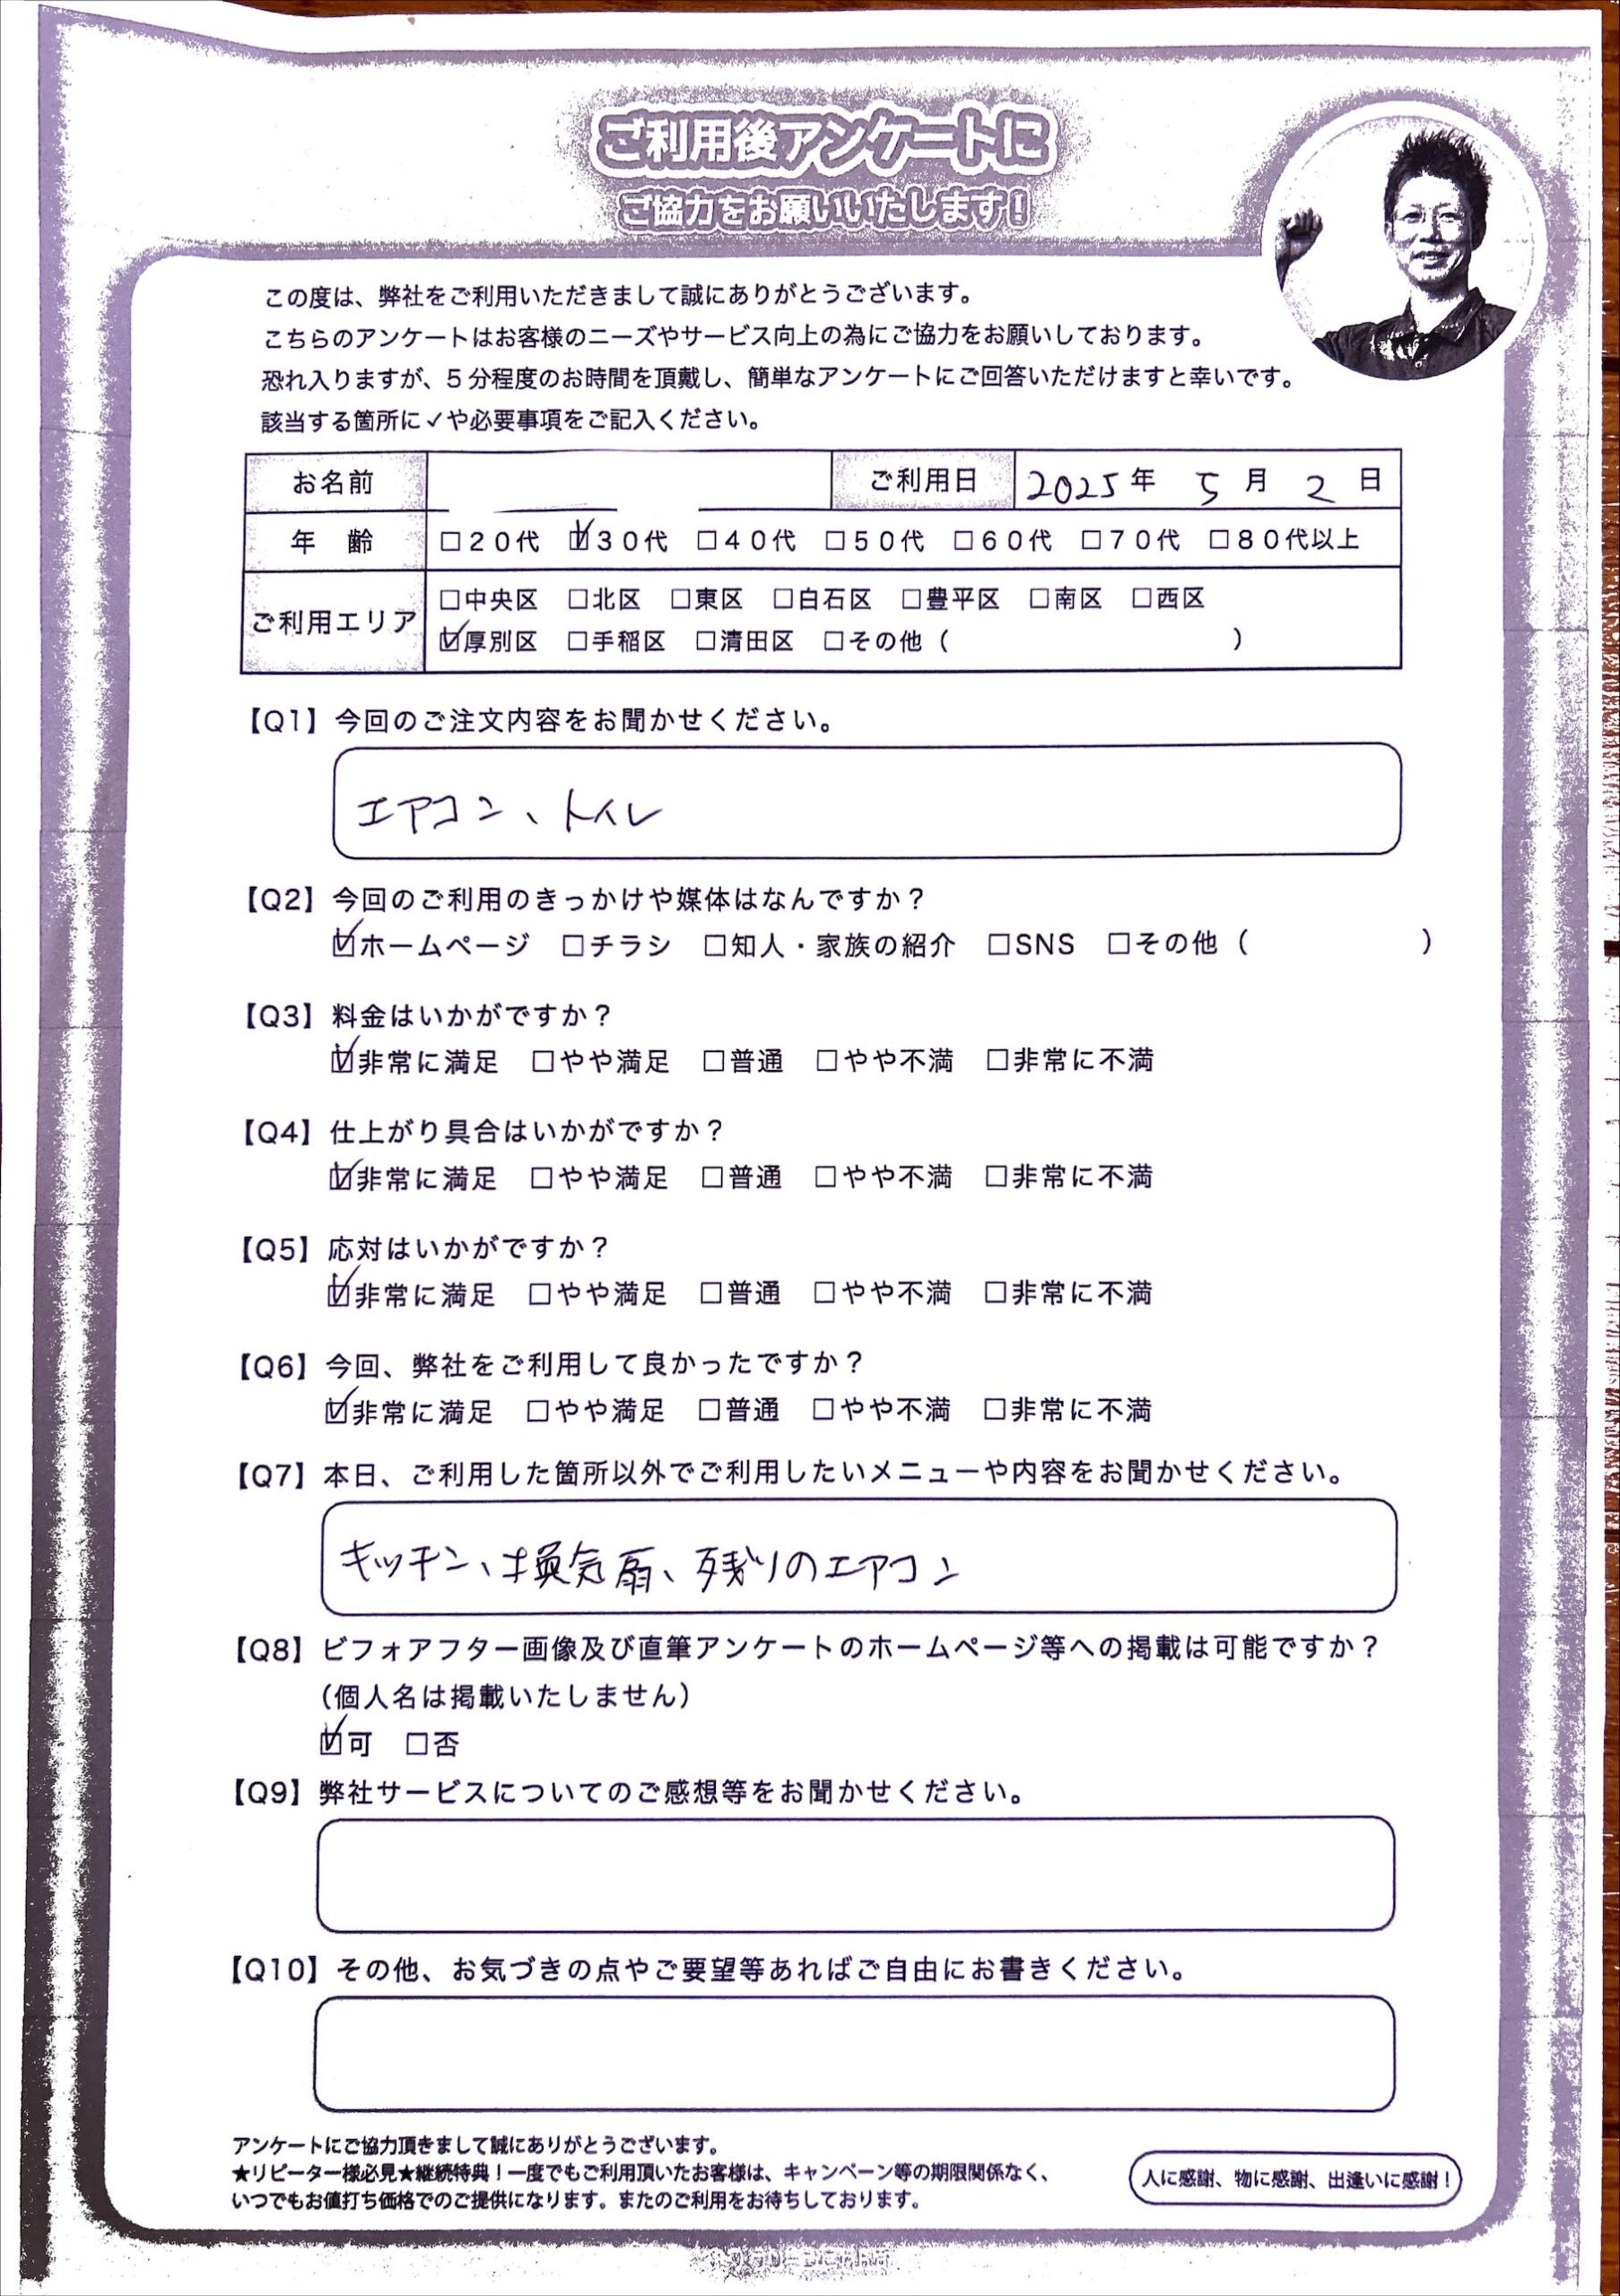 ご利用後アンケートに
ご協力をお願いいたします！
この度は、弊社をご利用いただきまして誠にありがとうございます。
こちらのアンケートはお客様のニーズやサービス向上の為にご協力をお願いしております。
恐れ入りますが、5分程度のお時間を頂戴し、簡単なアンケートにご回答いただけますと幸いです。
該当する箇所に✓や必要事項をご記入ください。
お名前 ご利用日 2025年 5月 2日
年 齢 □20代 ☑30代 □40代 □50代 □60代 □70代 □80代以上
ご利用エリア □中央区 □北区 □東区 □白石区 □豊平区 □南区 □西区
☑厚別区 □手稲区 □清田区 □その他（ ）
【Q1】今回のご注文内容をお聞かせください。
エアコン、トイレ
【Q2】今回のご利用のきっかけや媒体はなんですか？
☑ホームページ □チラシ □知人・家族の紹介 □SNS □その他（ ）
【Q3】料金はいかがですか？
☑非常に満足 □やや満足 □普通 □やや不満 □非常に不満
【Q4】仕上がり具合はいかがですか？
☑非常に満足 □やや満足 □普通 □やや不満 □非常に不満
【Q5】応対はいかがですか？
☑非常に満足 □やや満足 □普通 □やや不満 □非常に不満
【Q6】今回、弊社をご利用して良かったですか？
☑非常に満足 □やや満足 □普通 □やや不満 □非常に不満
【Q7】本日、ご利用した箇所以外でご利用したいメニューや内容をお聞かせください。
キッチン、換気扇、残りのエアコン
【Q8】ビフォアフター画像及び直筆アンケートのホームページ等への掲載は可能ですか？
（個人名は掲載いたしません）
☑可 □否
【Q9】弊社サービスについてのご感想等をお聞かせください。
【Q10】その他、お気づきの点やご要望等あればご自由にお書きください。
アンケートにご協力頂きまして誠にありがとうございます。
★リピーター様必見★継続特典！一度でもご利用頂いたお客様は、キャンペーン等の期限関係なく、
いつでもお値打ち価格でのご提供になります。またのご利用をお待ちしております。
人に感謝、物に感謝、出逢いに感謝！